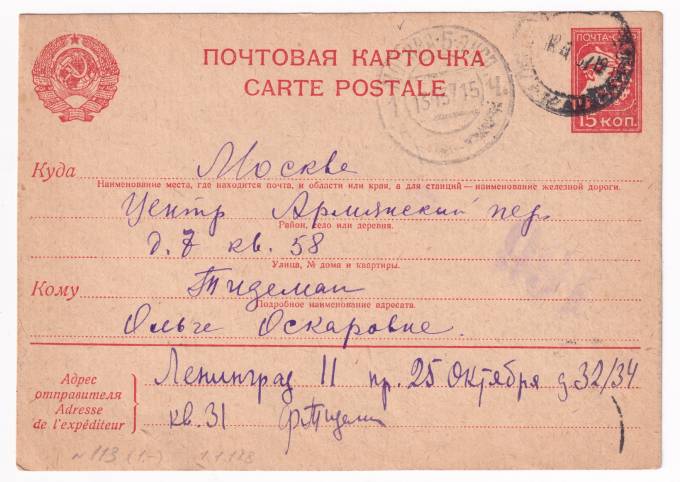 ПОЧТОВАЯ КАРТОЧКА
CARTE POSTALE
ПОЧТА СССР
15 КОП.
13 1 37 15 Ч.
Куда Москве
Наименование места, где находится почта, и области или края, а для станций — наименование железной дороги.
Центр Армянский пер.
Район, село или деревня.
д. 7 кв. 58
Улица, № дома и квартиры.
Кому Тидеман
Подробное наименование адресата.
Ольге Оскаровне.
Адрес отправителя
Adresse de l'expéditeur
Ленинград 11 пр. 25 Октября д 32/34
кв. 31
N 113 (1-) 1.1.123